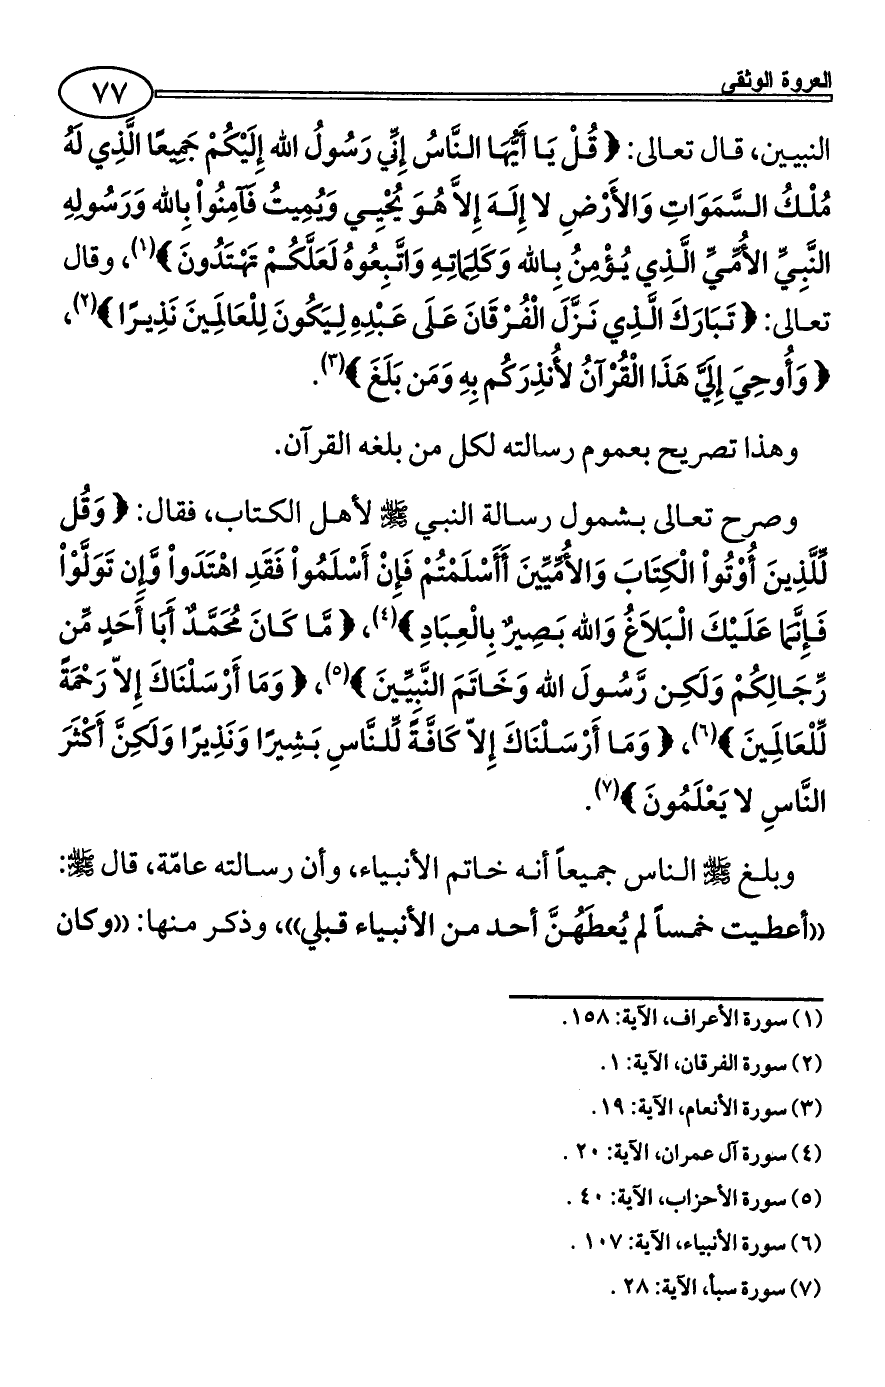 العروة الوثقى
٧٧
النبيين، قال تعالى: ﴿ قُلْ يَا أَيُّهَا النَّاسُ إِنِّي رَسُولُ الله إِلَيْكُمْ جَمِيعًا الَّذِي لَهُ
مُلْكُ السَّمَوَاتِ وَالأَرْضِ لا إِلَهَ إِلاَّ هُوَ يُحْيِي وَيُمِيتُ فَآمِنُواْ بِالله وَرَسُولِهِ
النَّبِيِّ الأُمِّيِّ الَّذِي يُؤْمِنُ بِالله وَكَلِمَاتِهِ وَاتَّبِعُوهُ لَعَلَّكُمْ تَهْتَدُونَ ﴾(١)، وقال
تعالى: ﴿ تَبَارَكَ الَّذِي نَزَّلَ الْفُرْقَانَ عَلَى عَبْدِهِ لِيَكُونَ لِلْعَالَمِينَ نَذِيرًا ﴾(٢)،
﴿ وَأُوحِيَ إِلَيَّ هَذَا الْقُرْآنُ لأُنذِرَكُم بِهِ وَمَن بَلَغَ ﴾(٣).
وهذا تصريح بعموم رسالته لكل من بلغه القرآن.
وصرح تعالى بشمول رسالة النبي ﷺ لأهل الكتاب، فقال: ﴿ وَقُل
لِّلَّذِينَ أُوْتُواْ الْكِتَابَ وَالأُمِّيِّينَ أَأَسْلَمْتُمْ فَإِنْ أَسْلَمُواْ فَقَدِ اهْتَدَواْ وَّإِن تَوَلَّوْاْ
فَإِنَّمَا عَلَيْكَ الْبَلاَغُ وَالله بَصِيرٌ بِالْعِبَادِ ﴾(٤)، ﴿ مَّا كَانَ مُحَمَّدٌ أَبَا أَحَدٍ مِّن
رِّجَالِكُمْ وَلَكِن رَّسُولَ الله وَخَاتَمَ النَّبِيِّينَ ﴾(٥)، ﴿ وَمَا أَرْسَلْنَاكَ إِلاّ رَحْمَةً
لِّلْعَالَمِينَ ﴾(٦)، ﴿ وَمَا أَرْسَلْنَاكَ إِلاّ كَافَّةً لِّلنَّاسِ بَشِيرًا وَنَذِيرًا وَلَكِنَّ أَكْثَرَ
النَّاسِ لا يَعْلَمُونَ ﴾(٧).
وبلغ ﷺ الناس جميعاً أنه خاتم الأنبياء، وأن رسالته عامّة، قال ﷺ:
((أعطيت خمساً لم يُعطَهُنَّ أحد من الأنبياء قبلي))، وذكر منها: ((وكان
(١) سورة الأعراف، الآية: ١٥٨.
(٢) سورة الفرقان، الآية: ١.
(٣) سورة الأنعام، الآية: ١٩.
(٤) سورة آل عمران، الآية: ٢٠ .
(٥) سورة الأحزاب، الآية: ٤٠ .
(٦) سورة الأنبياء، الآية: ١٠٧ .
(٧) سورة سبأ، الآية: ٢٨ .